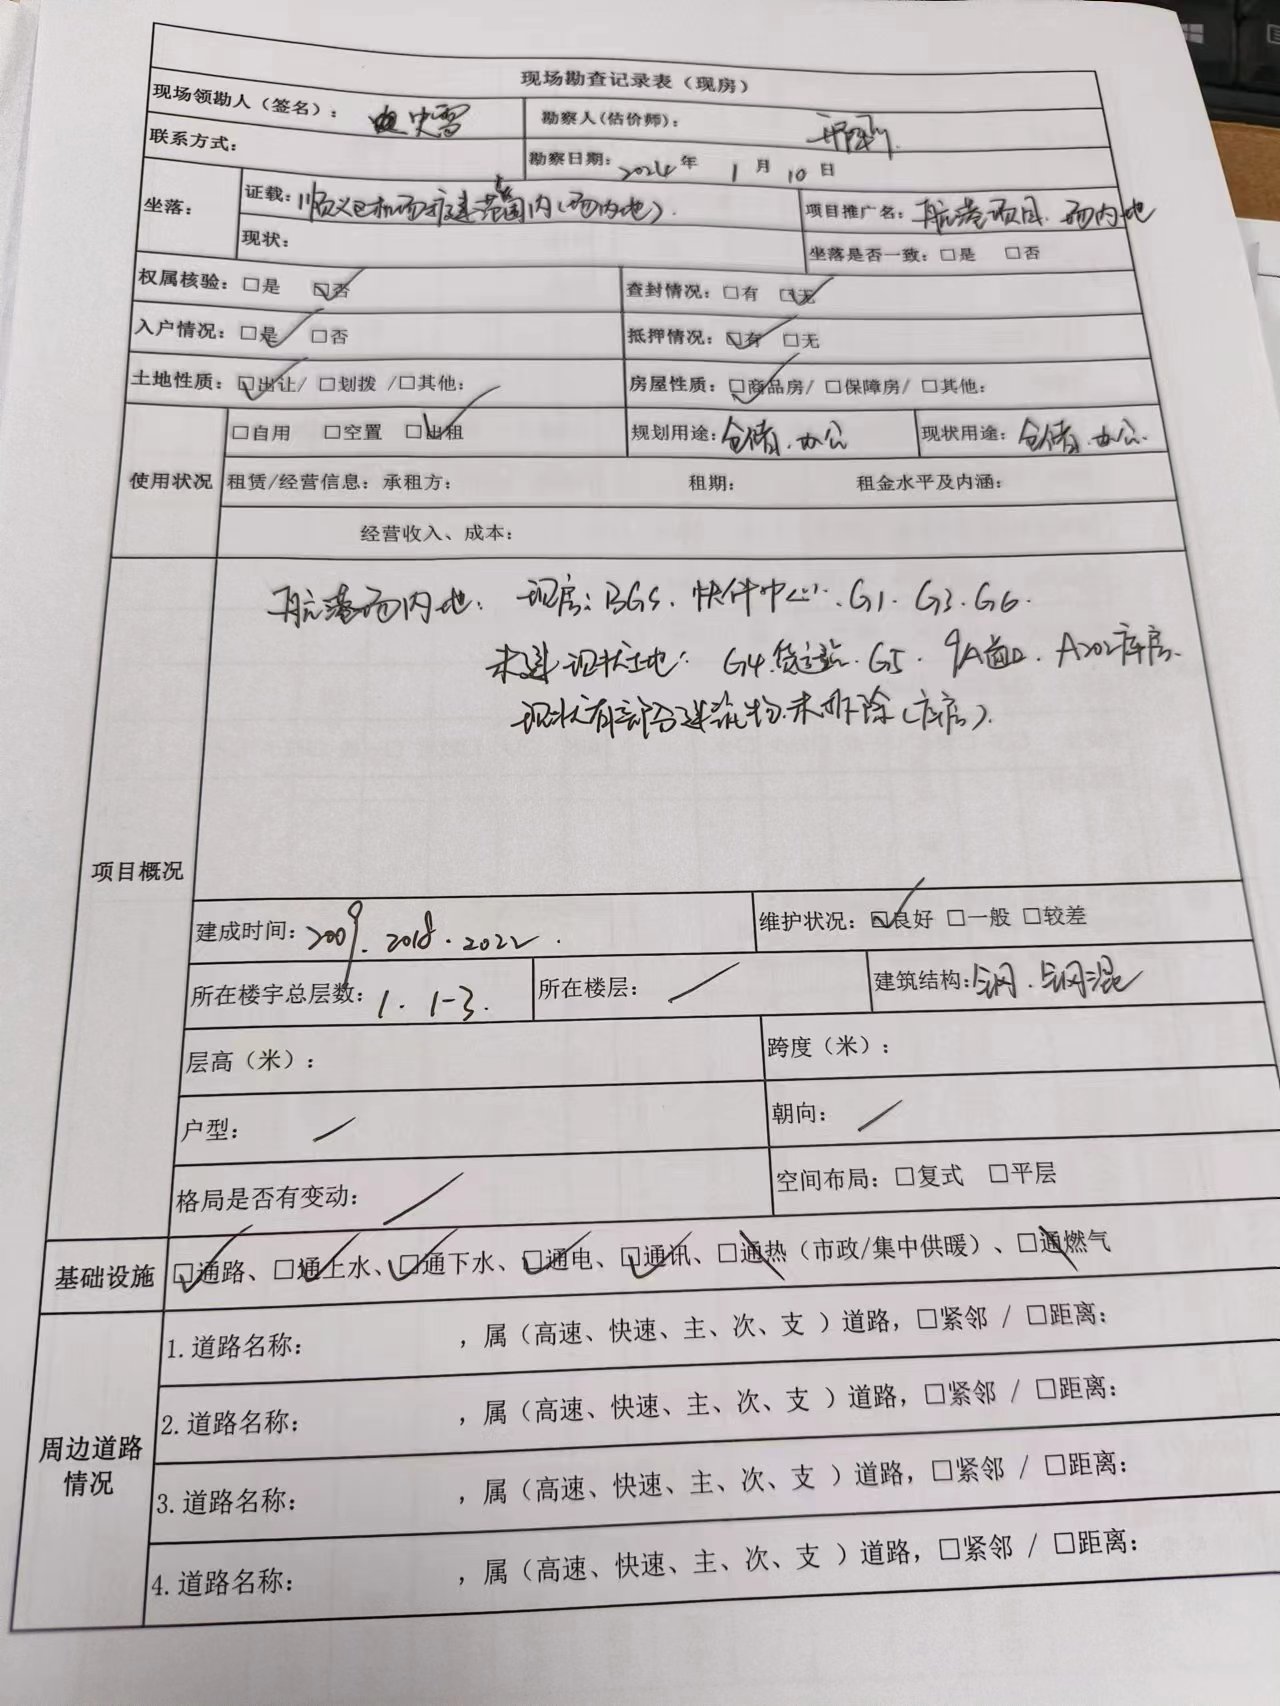 现场勘查记录表（现房）
现场领勘人（签名）： 勘察人(估价师)：
联系方式： 勘察日期：2024年 1月 10日
坐落： 证载：顺义区机场扩建范围内（场内地）. 项目推广名：航港项目.场内地
现状： 坐落是否一致：□是 □否
权属核验：□是 ☑否 查封情况：□有 ☑无
入户情况：☑是 □否 抵押情况：☑有 □无
土地性质：☑出让/ □划拨 /□其他： 房屋性质：☑商品房/ □保障房/ □其他：
使用状况 □自用 □空置 ☑出租 规划用途：仓储.办公 现状用途：仓储.办公.
租赁/经营信息：承租方： 租期： 租金水平及内涵：
经营收入、成本：
项目概况
航港场内地： 现房：BGS.快件中心.G1.G3.G6.
未建现状土地： G4货运站.G5. 9A .A202库房.
现状有部分建筑物.未拆除(库房).
建成时间：2009.2018.2022. 维护状况：☑良好 □一般 □较差
所在楼宇总层数：1. 1-3. 所在楼层：/ 建筑结构：钢.钢混
层高（米）： 跨度（米）：
户型： / 朝向： /
格局是否有变动： / 空间布局：□复式 □平层
基础设施 ☑通路、☑通上水、☑通下水、☑通电、☑通讯、□通热（市政/集中供暖）、□通燃气
周边道路情况
1.道路名称： ，属（高速、快速、主、次、支 ）道路，□紧邻 / □距离：
2.道路名称： ，属（高速、快速、主、次、支 ）道路，□紧邻 / □距离：
3.道路名称： ，属（高速、快速、主、次、支 ）道路，□紧邻 / □距离：
4.道路名称： ，属（高速、快速、主、次、支 ）道路，□紧邻 / □距离：